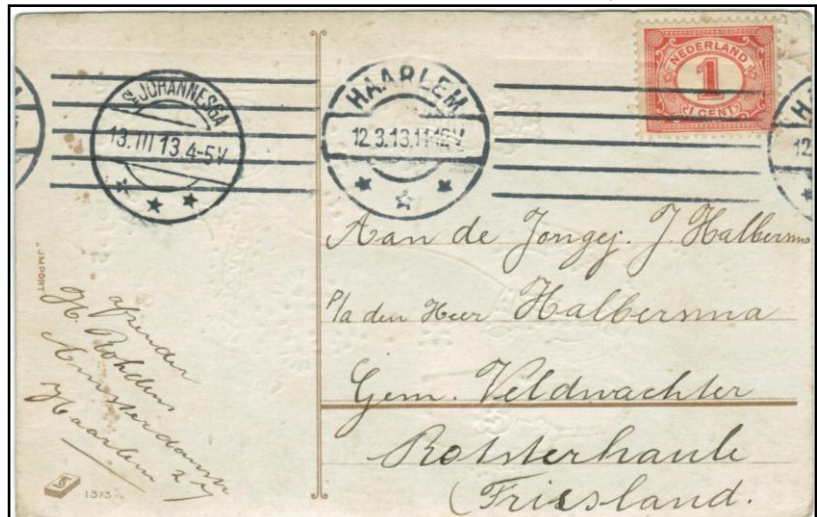 St JOHANNESGA
13.III 13.4-5V
HAARLEM
12.3.13.11-12V
NEDERLAND
1
1 CENT
HA
12
Aan de Jongej. J. Halbersma
p/a den Heer Halbersma
Gem. Veldwachter
Rotsterhaule
(Friesland.
JMPORT
afzender
H. Rohdens
Amsterdamstr
Haarlem 27
1373